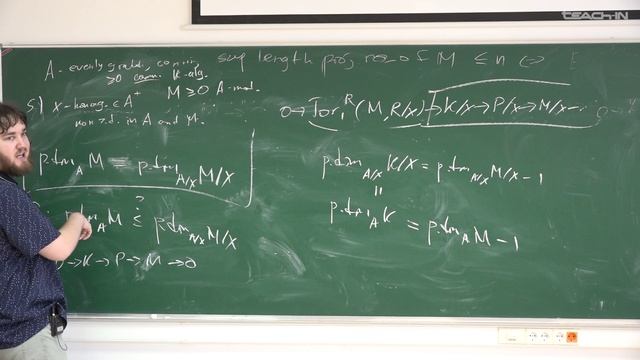 TEACHIN
A - evenly grad., conn.,
≥0 comm. k-alg.
sup length proj. res. of M ≤ n ⇔
5) x-homog. ∈ A⁺
M ≥ 0 A-mod.
non z.d. in A and M.
0 → Tor₁ᴿ(M, R/x) → K/x → P/x → M/x → 0
p.dim_A M = p.dim_{A/x} M/x
p.dim_{A/x} K/x = p.dim_{A/x} M/x - 1
||
?
p.dim_A M ≤ p.dim_{A/x} M/x
p.dim_A K = p.dim_A M - 1
0 → K → P → M → 0